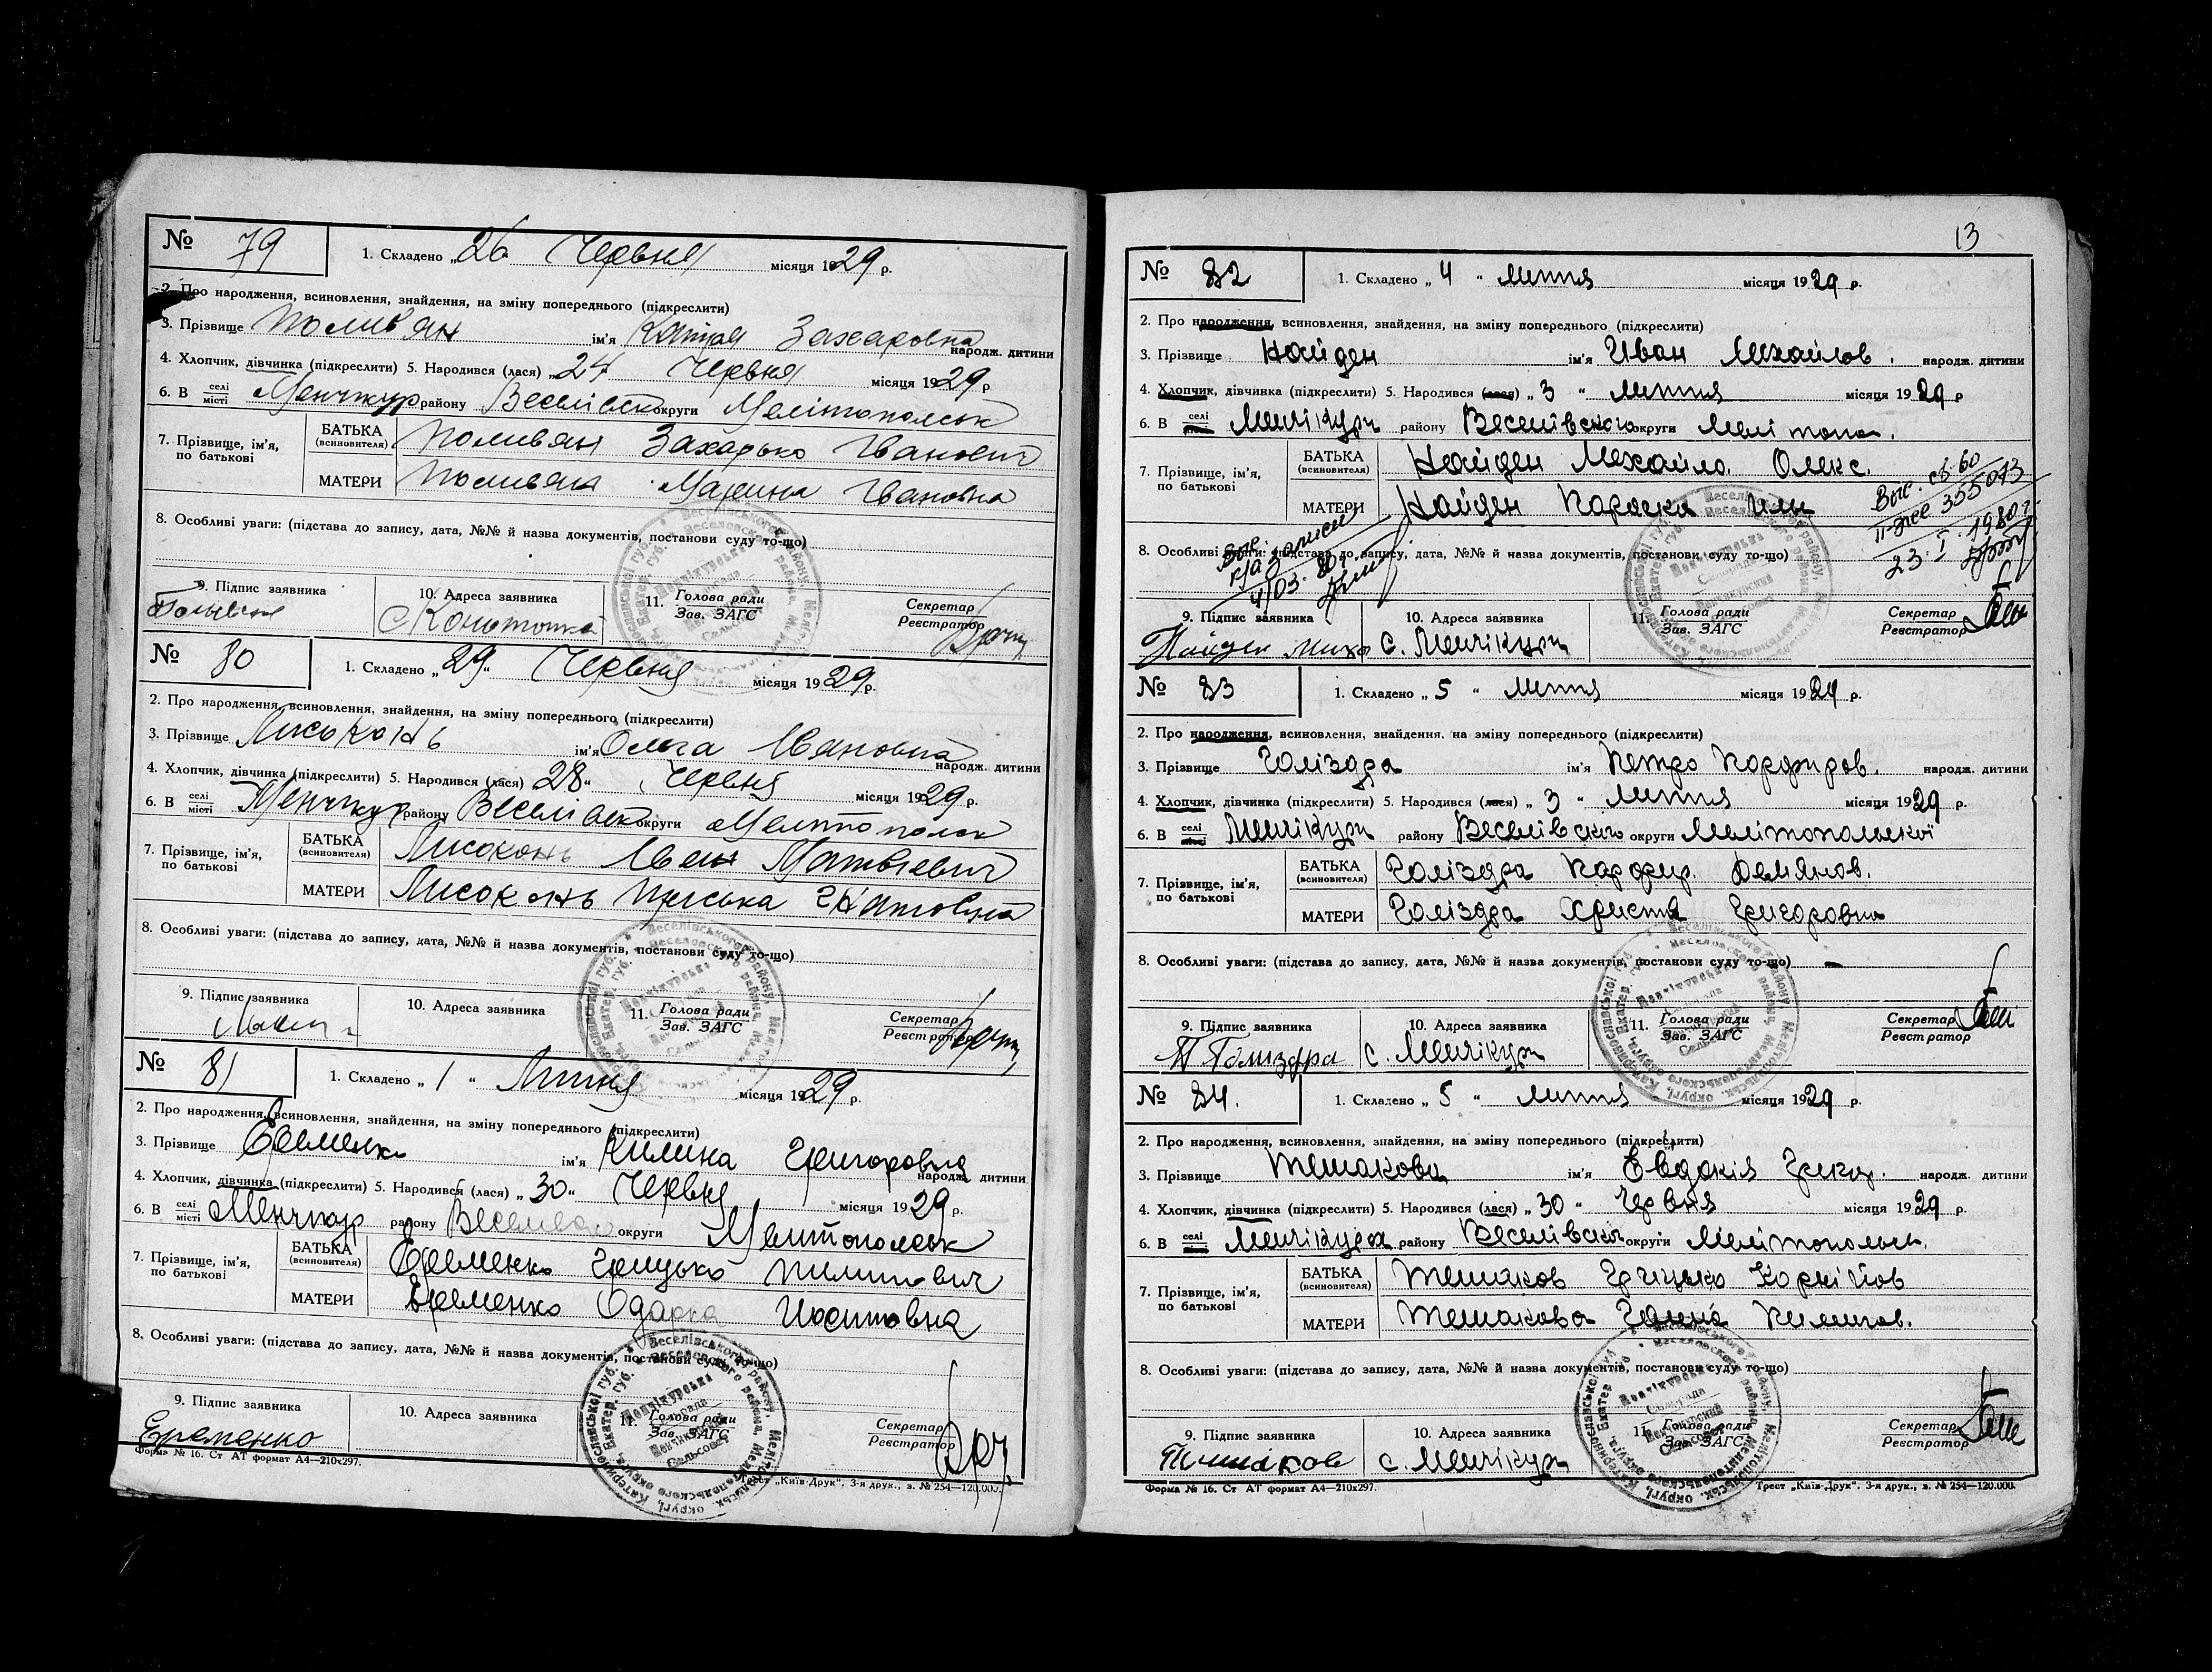 № 79
1. Складено „26 Червня місяця 1929 р.
2. Про народження, всиновлення, знайдення, на зміну попереднього (підкреслити)
3. Прізвище Полив'ян ім'я Катря Захаровна народж. дитини
4. Хлопчик, дівчинка (підкреслити) 5. Народився (лася) „24 Червня місяця 1929 р
6. В селі місті Менчкур району Веселівск округи Мелітопольск
7. Прізвище, ім'я, по батькові
БАТЬКА (всиновителя) Поливян Захарько Іванович
МАТЕРИ Поливян Марина Івановна
8. Особливі уваги: (підстава до запису, дата, №№ й назва документів, постанови суду то-що)
9. Підпис заявника
10. Адреса заявника
11. Голова ради Зав. ЗАГС
Секретар Реєстратор
№ 80
1. Складено „29" Червня місяця 1929 р.
2. Про народження, всиновлення, знайдення, на зміну попереднього (підкреслити)
3. Прізвище Лисоконь ім'я Ольга Івановна народж. дитини
4. Хлопчик, дівчинка (підкреслити) 5. Народився (лася) „28" Червня місяця 1929 р.
6. В селі місті Менчкур району Веселівск округи Мелитопольск
7. Прізвище, ім'я, по батькові
БАТЬКА (всиновителя) Лисоконь Іван Матвієвич
МАТЕРИ Лисоконь Приська Гнатовна
8. Особливі уваги: (підстава до запису, дата, №№ й назва документів, постанови суду то-що)
9. Підпис заявника
10. Адреса заявника
11. Голова ради Зав. ЗАГС
Секретар Реєстратор
№ 81
1. Складено „1" Липня місяця 1929 р.
2. Про народження, всиновлення, знайдення, на зміну попереднього (підкреслити)
3. Прізвище Єременко ім'я Килина Григоровна народж. дитини
4. Хлопчик, дівчинка (підкреслити) 5. Народився (лася) „30" Червня місяця 1929 р.
6. В селі місті Менчкур району округи Мелитопольск
7. Прізвище, ім'я, по батькові
БАТЬКА (всиновителя) Єременко Грицько Пилипович
МАТЕРИ Єременко Одарка Иосиповна
8. Особливі уваги: (підстава до запису, дата, №№ й назва документів, постанови суду то-що)
9. Підпис заявника Еременко
10. Адреса заявника
11. Голова ради Зав. ЗАГС
Секретар Реєстратор
Форма № 16. Ст АТ формат А4—210х297.
Трест „Київ-Друк". 3-я друк., з. № 254—120.000.
13
№ 82
1. Складено „4" Липня місяця 1929 р.
2. Про народження, всиновлення, знайдення, на зміну попереднього (підкреслити)
3. Прізвище Найден ім'я Иван Михайлов. народж. дитини
4. Хлопчик, дівчинка (підкреслити) 5. Народився (лася) „3" Липня місяця 1929 р
6. В селі місті Менчікури району Веселівского округи Меліто
7. Прізвище, ім'я, по батькові
БАТЬКА (всиновителя) Найден Михайло Олекс.
МАТЕРИ Найден Параска
23.I.1980г.
8. Особливі уваги: (підстава до запису, дата, №№ й назва документів, постанови суду то-що)
9. Підпис заявника Найден Миха
10. Адреса заявника с. Менчікури
11. Голова ради Зав. ЗАГС
Секретар Реєстратор
№ 83
1. Складено „5" Липня місяця 1929 р.
2. Про народження, всиновлення, знайдення, на зміну попереднього (підкреслити)
3. Прізвище Голіздра ім'я Петро Порфиров. народж. дитини
4. Хлопчик, дівчинка (підкреслити) 5. Народився (лася) „3" Липня місяця 1929 р.
6. В селі місті Менчікури району Веселівского округи Мелітопольскої
7. Прізвище, ім'я, по батькові
БАТЬКА (всиновителя) Голіздра Порфир. Демянов.
МАТЕРИ Голіздра Христя Григоровна
8. Особливі уваги: (підстава до запису, дата, №№ й назва документів, постанови суду то-що) —
9. Підпис заявника П Голиздра
10. Адреса заявника с. Менчікури
11. Голова ради Зав. ЗАГС
Секретар Реєстратор
№ 84.
1. Складено „5" Липня місяця 1929 р.
2. Про народження, всиновлення, знайдення, на зміну попереднього (підкреслити)
3. Прізвище Тешакова ім'я Евдокія Гриц. народж. дитини
4. Хлопчик, дівчинка (підкреслити) 5. Народився (лася) „30" Червня місяця 1929 р.
6. В селі місті Менчікури району Веселівского округи Мелітопольск.
7. Прізвище, ім'я, по батькові
БАТЬКА (всиновителя) Тешаков Грицько Корнійов
МАТЕРИ Тешакова Ганна Пилипов.
8. Особливі уваги: (підстава до запису, дата, №№ й назва документів, постанови суду то-що)
9. Підпис заявника
10. Адреса заявника с. Менчікури
11. Голова ради Зав. ЗАГС
Секретар Реєстратор
Форма № 16. Ст АТ формат А4—210х297.
Трест „Київ-Друк". 3-я друк., з. № 254—120.000.